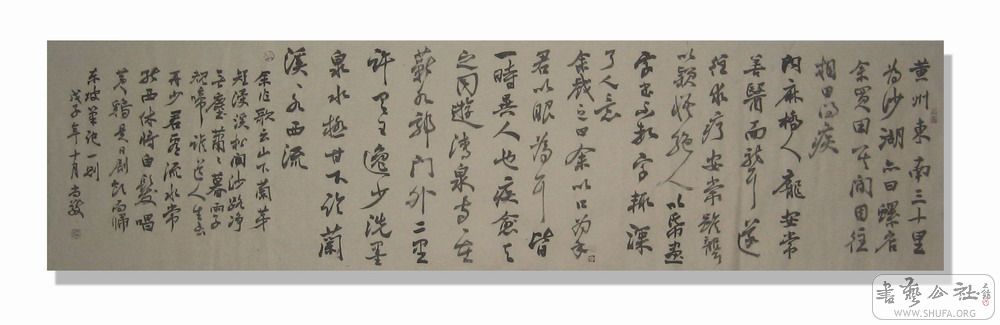 黄州東南三十里
为沙湖亦曰螺店
余買田其间因往
相田得疾
闻麻橋人龐安常
善醫而聋遂
往求疗安常雖聾
以颖悟絶人以紙畫
字書不数字輒深
了人意
余戲之曰余以口为手
君以眼為耳皆
一時異人也疾愈与
之同遊清泉寺在
蘄水郭門外二里
许有王逸少洗墨
泉水極甘下临蘭
溪水西流
余作歌云山下蘭芽
短浸溪松间沙路净
无塵蕭々暮雨子
规啼谁道人生
再少君看流水常
能西休将白髮唱
黄鷄是日剧飲而歸
東坡筆记一則
戊子年十月
書藝公社
WWW.SHUFA.ORG